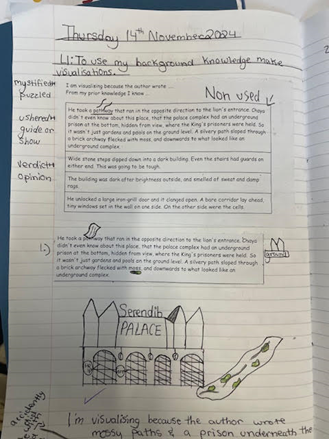 Thursday 14th November 2024
LI: To use my background knowledge make
visualisations.
mystified =
puzzled
ushered =
guide or
show
verdict =
opinion
I am visualising because the author wrote ...
From my prior knowledge I know ...
Non used
He took a pathway that ran in the opposite direction to the lion's entrance. Chaya
didn't even know about this place, that the palace complex had an underground
prison at the bottom, hidden from view, where the King's prisoners were held. So
it wasn't just gardens and pools on the ground level. A silvery path sloped through
a brick archway flecked with moss, and downwards to what looked like an
underground complex.
Wide stone steps dipped down into a dark building. Even the stairs had guards on
either end. This was going to be tough.
The building was dark after brightness outside, and smelled of sweat and damp
rags.
He unlocked a large iron-grill door and it clanged open. A bare corridor lay ahead,
tiny windows set in the wall on one side. On the other side were the cells.
1.)
He took a pathway that ran in the opposite direction to the lion's entrance. Chaya
didn't even know about this place, that the palace complex had an underground
prison at the bottom, hidden from view, where the King's prisoners were held. So
it wasn't just gardens and pools on the ground level. A silvery path sloped through
a brick archway flecked with moss, and downwards to what looked like an
underground complex.
Serendib
PALACE
I'm visualising because the author wrote
mossy paths & a prison underneath the